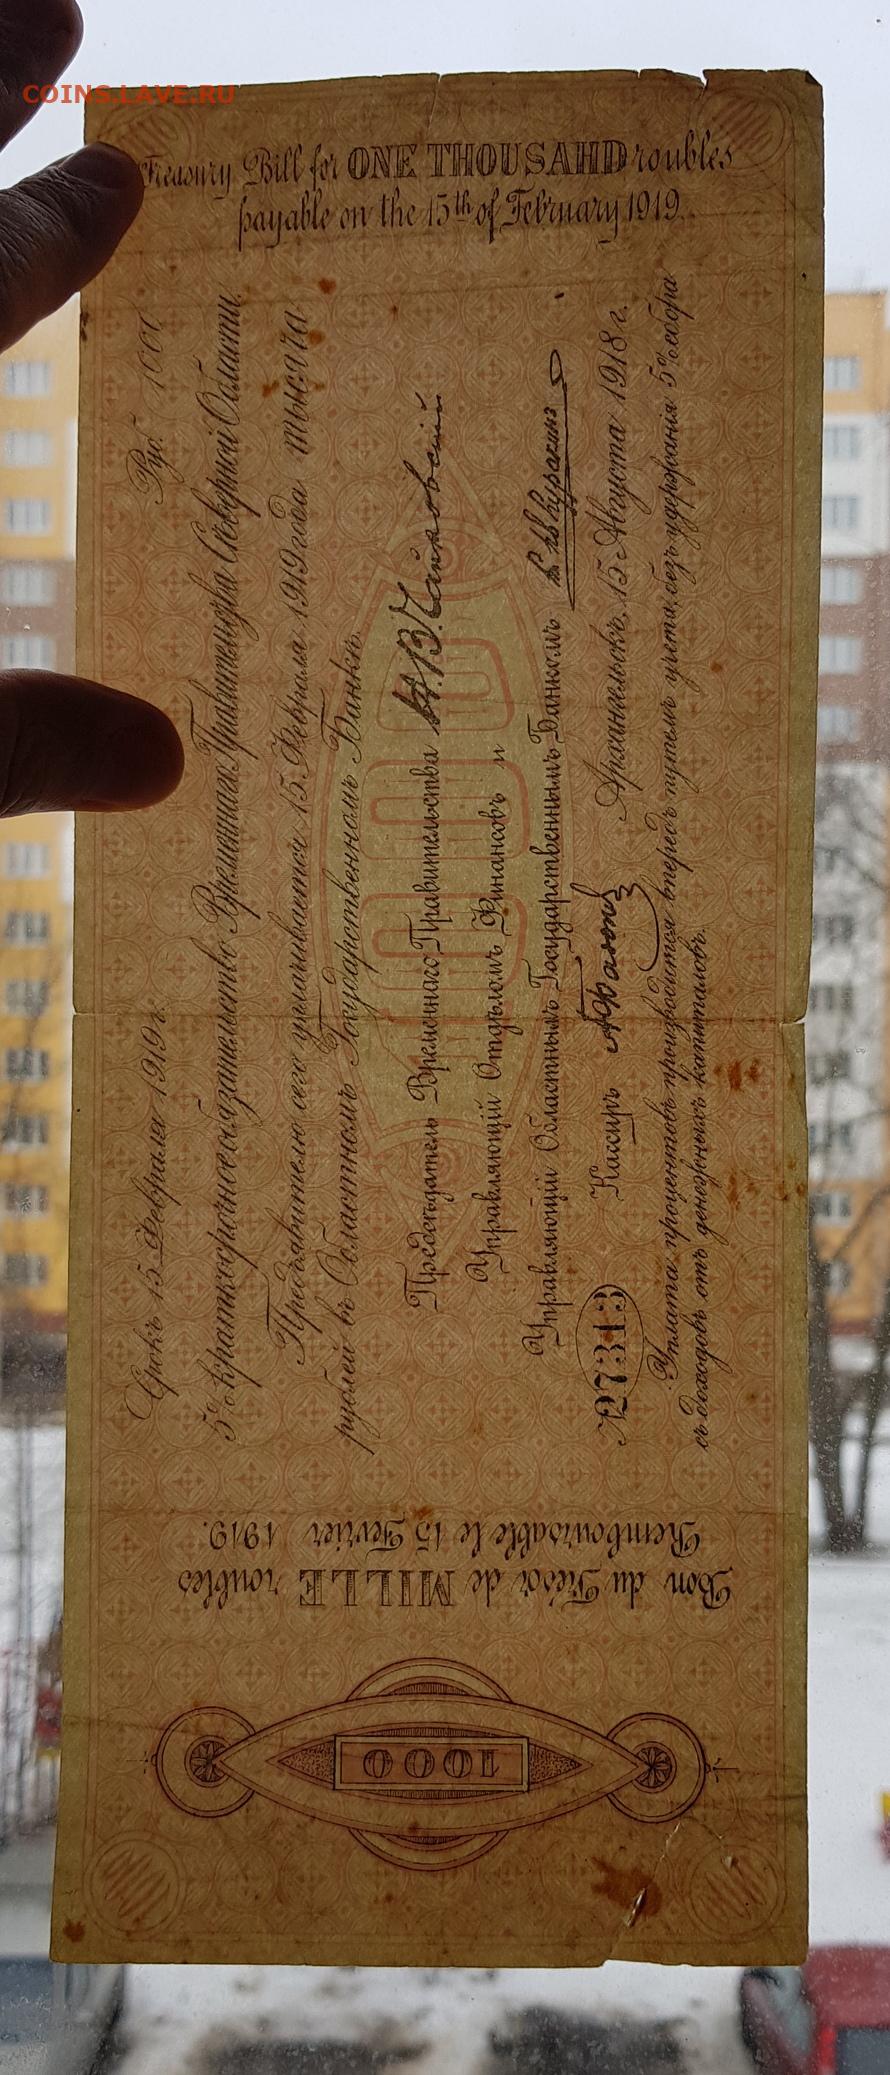 COINS.LAVE.RU
Treasury Bill for ONE THOUSAHD roubles
payable on the 15th of February 1919.
Срокъ 15 Февраля 1919 г. Руб. 1000
5% краткосрочное обязательство Временнаго Правительства Сѣверной Области.
Предъявителю сего уплачивается 15 Февраля 1919 года тысяча
рублей въ Областномъ Государственномъ Банкѣ.
Предсѣдатель Временнаго Правительства Н.В. Чайковскій
Управляющій Отдѣломъ Финансовъ и
Управляющій Областнымъ Государственнымъ Банкомъ Куракинъ
Архангельскъ, 15 Августа 1918 г.
№ 27313 Кассиръ
Уплата процентовъ производится впередъ путемъ учета, безъ удержанія 5% сбора
съ доходовъ отъ денежныхъ капиталовъ.
Bon du Trésor de MILLE roubles
Remboursable le 15 Fevrier 1919.
1000
1000